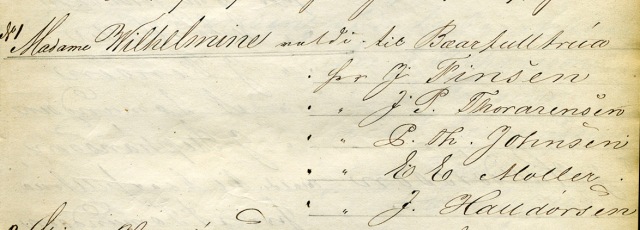 No 1
Madame Wilhelmine valdi til Bæarfulltrúa
þr J Finsen
" J. P. Thorarensen
" P. Th. Johnsen
" E E Moller.
" J. Halldórsen